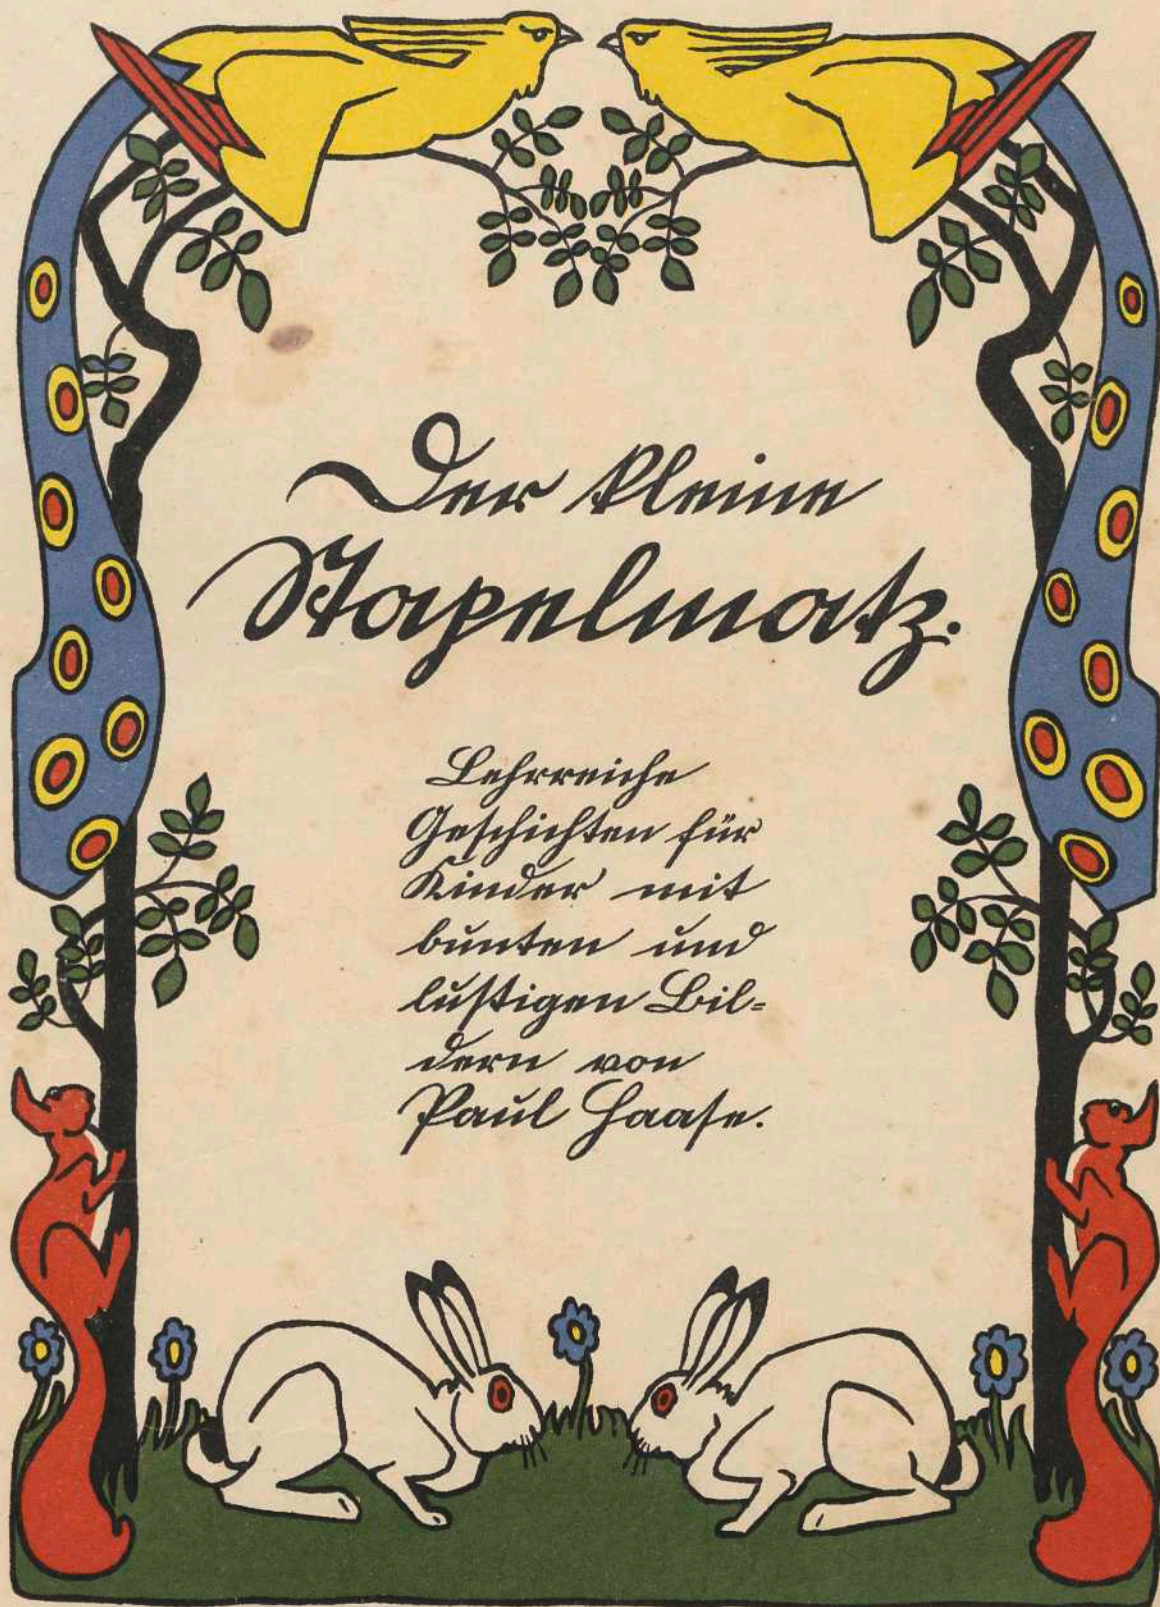 Der kleine
Stapelmatz.
Lehrreiche
Geschichten für
Kinder mit
bunten und
lustigen Bil-
dern von
Paul Haase.